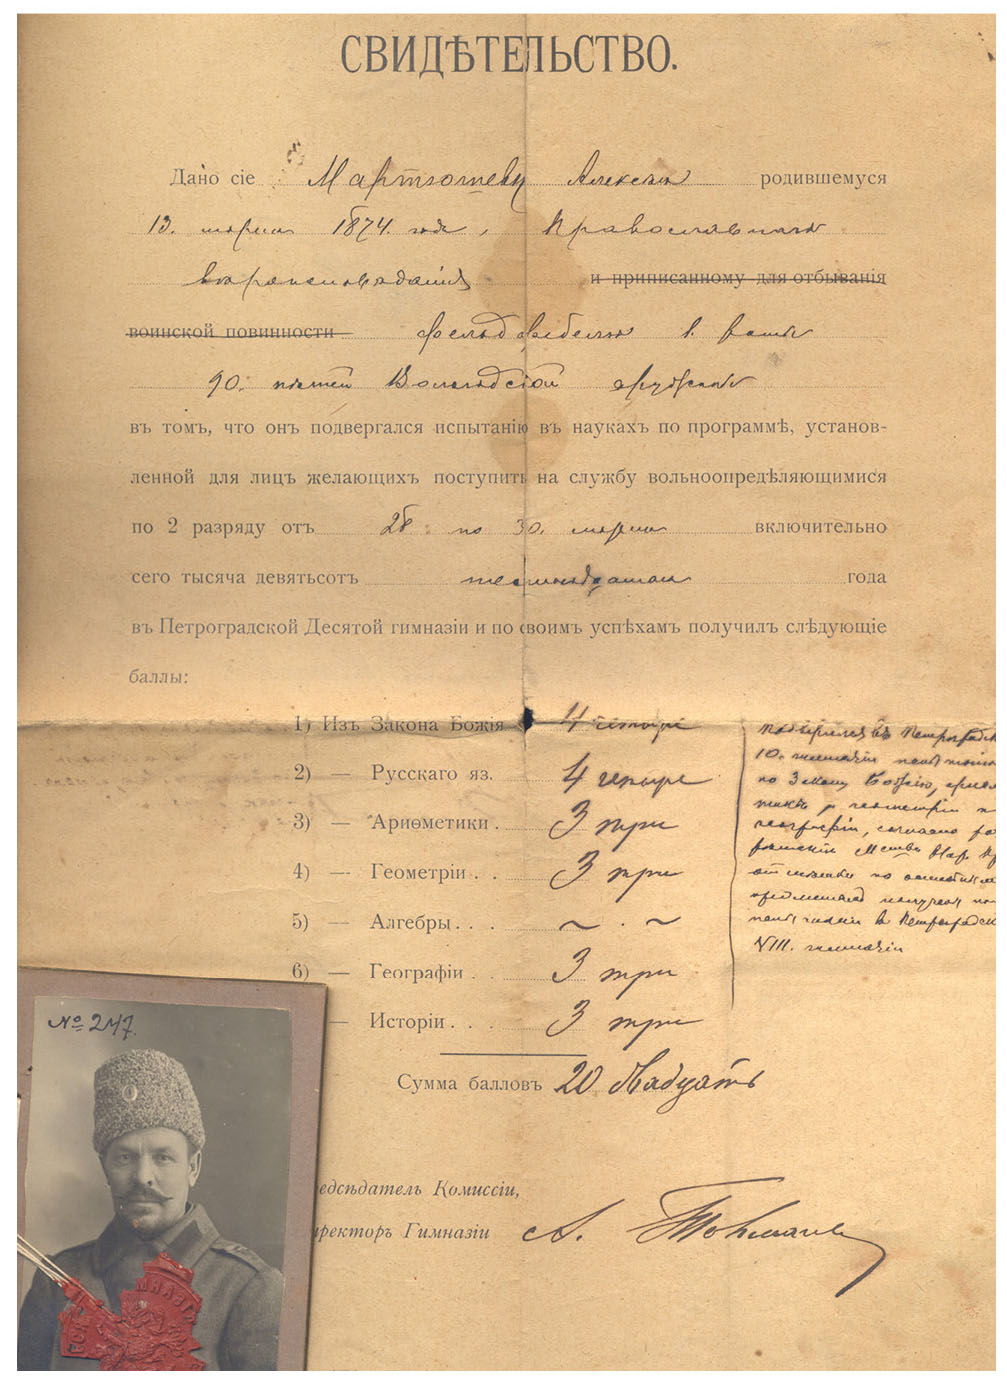 СВИДѢТЕЛЬСТВО.
Дано сіе Мартюшеву Алексѣю родившемуся
13. марта 1874. года, православнаго
вѣроисповѣданія и приписанному для отбыванія
воинской повинности фельдфебелю
90. пѣшей Вологодской дружины
въ томъ, что онъ подвергался испытанію въ наукахъ по программѣ, установ-
ленной для лицъ желающихъ поступить на службу вольноопредѣляющимися
по 2 разряду отъ 28. по 30. марта включительно
сего тысяча девятьсотъ года
въ Петроградской Десятой гимназіи и по своимъ успѣхамъ получилъ слѣдующіе
баллы:
1) Изъ Закона Божія 4 четыре
2) — Русскаго яз. 4 четыре
3) — Ариѳметики . 3 три
4) — Геометріи . . 3 три
5) — Алгебры . . . ~ . ~
6) — Географіи . . 3 три
— Исторіи . . . 3 три
Сумма балловъ 20 двадцать
подвергался въ Петроградск
10. гимназіи испытанію
по Закону Божію,
геометріи и
географіи, согласно
Нар. Пр
отмѣтки по остальнымъ
предметамъ получены
испытаніи въ Петроградск
VIII. гимназіи
№ 247.
едсѣдатель Комиссіи,
иректоръ Гимназіи А.